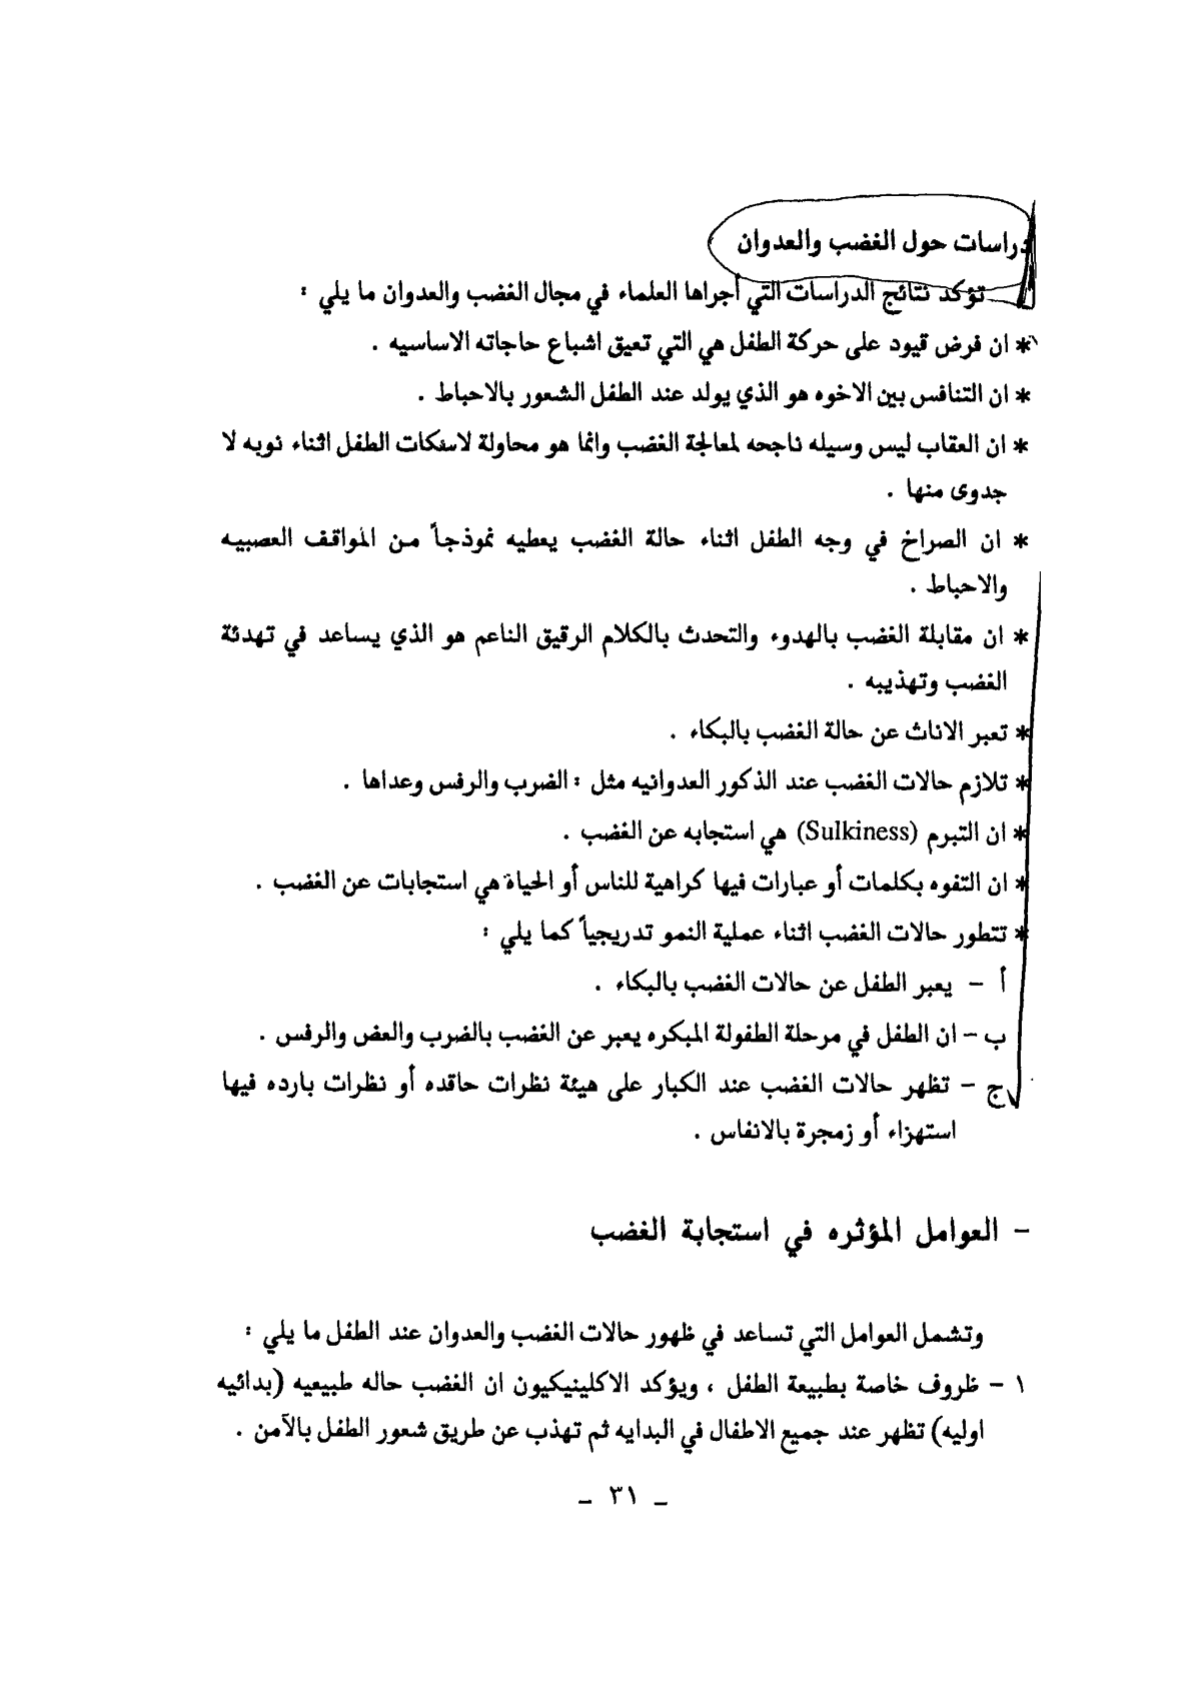 دراسات حول الغضب والعدوان
تؤكد نتائج الدراسات التي أجراها العلماء في مجال الغضب والعدوان ما يلي :
* ان فرض قيود على حركة الطفل هي التي تعيق اشباع حاجاته الاساسيه .
* ان التنافس بين الاخوه هو الذي يولد عند الطفل الشعور بالاحباط .
* ان العقاب ليس وسيله ناجحه لمعالجة الغضب وانما هو محاولة لاسكات الطفل اثناء نوبه لا
جدوى منها .
* ان الصراخ في وجه الطفل اثناء حالة الغضب يعطيه نموذجاً من المواقف العصبيه
والاحباط .
* ان مقابلة الغضب بالهدوء والتحدث بالكلام الرقيق الناعم هو الذي يساعد في تهدئة
الغضب وتهذيبه .
* تعبر الاناث عن حالة الغضب بالبكاء .
* تلازم حالات الغضب عند الذكور العدوانيه مثل : الضرب والرفس وعداها .
* ان التبرم (Sulkiness) هي استجابه عن الغضب .
* ان التفوه بكلمات أو عبارات فيها كراهية للناس أو الحياة هي استجابات عن الغضب .
* تتطور حالات الغضب اثناء عملية النمو تدريجياً كما يلي :
أ - يعبر الطفل عن حالات الغضب بالبكاء .
ب - ان الطفل في مرحلة الطفولة المبكره يعبر عن الغضب بالضرب والعض والرفس .
ج - تظهر حالات الغضب عند الكبار على هيئة نظرات حاقده أو نظرات بارده فيها
استهزاء أو زمجرة بالانفاس .
- العوامل المؤثره في استجابة الغضب
وتشمل العوامل التي تساعد في ظهور حالات الغضب والعدوان عند الطفل ما يلي :
١ - ظروف خاصة بطبيعة الطفل ، ويؤكد الاكلينيكيون ان الغضب حاله طبيعيه (بدائيه
اوليه) تظهر عند جميع الاطفال في البدايه ثم تهذب عن طريق شعور الطفل بالآمن .
- ٣١ -